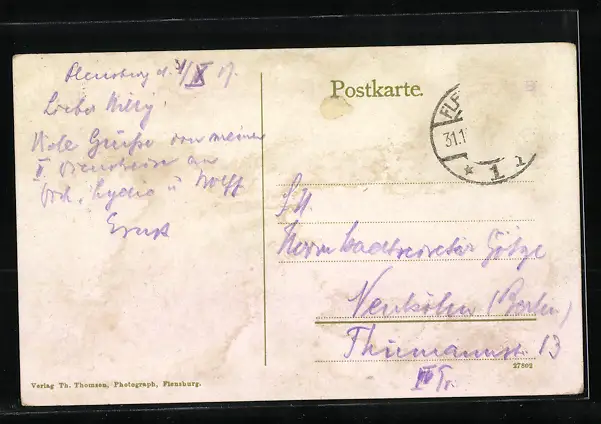 Flensburg d. 31/X 17.
Lieber Willy!
Viele Grüße von meiner
II. Dienstreise an
Dich, Lydia u. Wolff
Ernst
Postkarte.
FLE
31.1
* 1 1
Herrn Stadtsekretär Götze
Neukölln (Berlin)
Thumannstr. 13
II Tr.
Verlag Th. Thomsen, Photograph, Flensburg.
27892